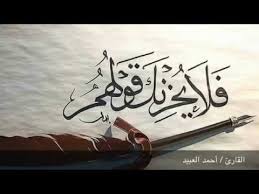 فَلَا يَحْزُنْكَ قَوْلُهُمْ
القارئ / أحمد العبيد